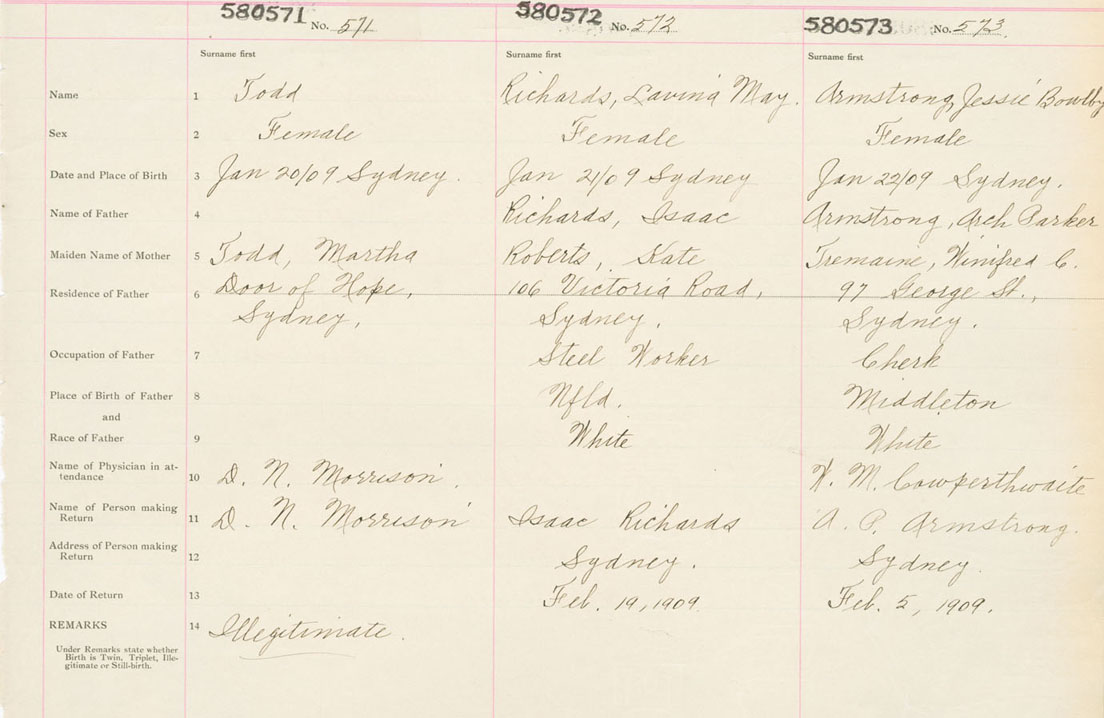 580571 No. 571 580572 No. 572 580573 No. 573
Surname first Surname first Surname first
Name 1 Todd Richards, Lavina May. Armstrong, Jessie Bowlby
Sex 2 Female Female Female
Date and Place of Birth 3 Jan 20/09 Sydney. Jan 21/09 Sydney Jan 22/09 Sydney.
Name of Father 4 Richards, Isaac Armstrong, Arch Parker
Maiden Name of Mother 5 Todd, Martha Roberts, Kate Tremaine, Winifred C.
Residence of Father 6 Door of Hope, 106 Victoria Road, 97 George St.,
Sydney, Sydney, Sydney.
Occupation of Father 7 Steel Worker Clerk
Place of Birth of Father 8 Nfld. Middleton
and
Race of Father 9 White White
Name of Physician in at-
tendance 10 D. N. Morrison. W. M. Cowperthwaite
Name of Person making
Return 11 D. N. Morrison Isaac Richards A. P. Armstrong.
Address of Person making
Return 12 Sydney. Sydney.
Date of Return 13 Feb. 19, 1909. Feb. 5, 1909.
REMARKS 14 Illegitimate.
Under Remarks state whether
Birth is Twin, Triplet, Ille-
gitimate or Still-birth.